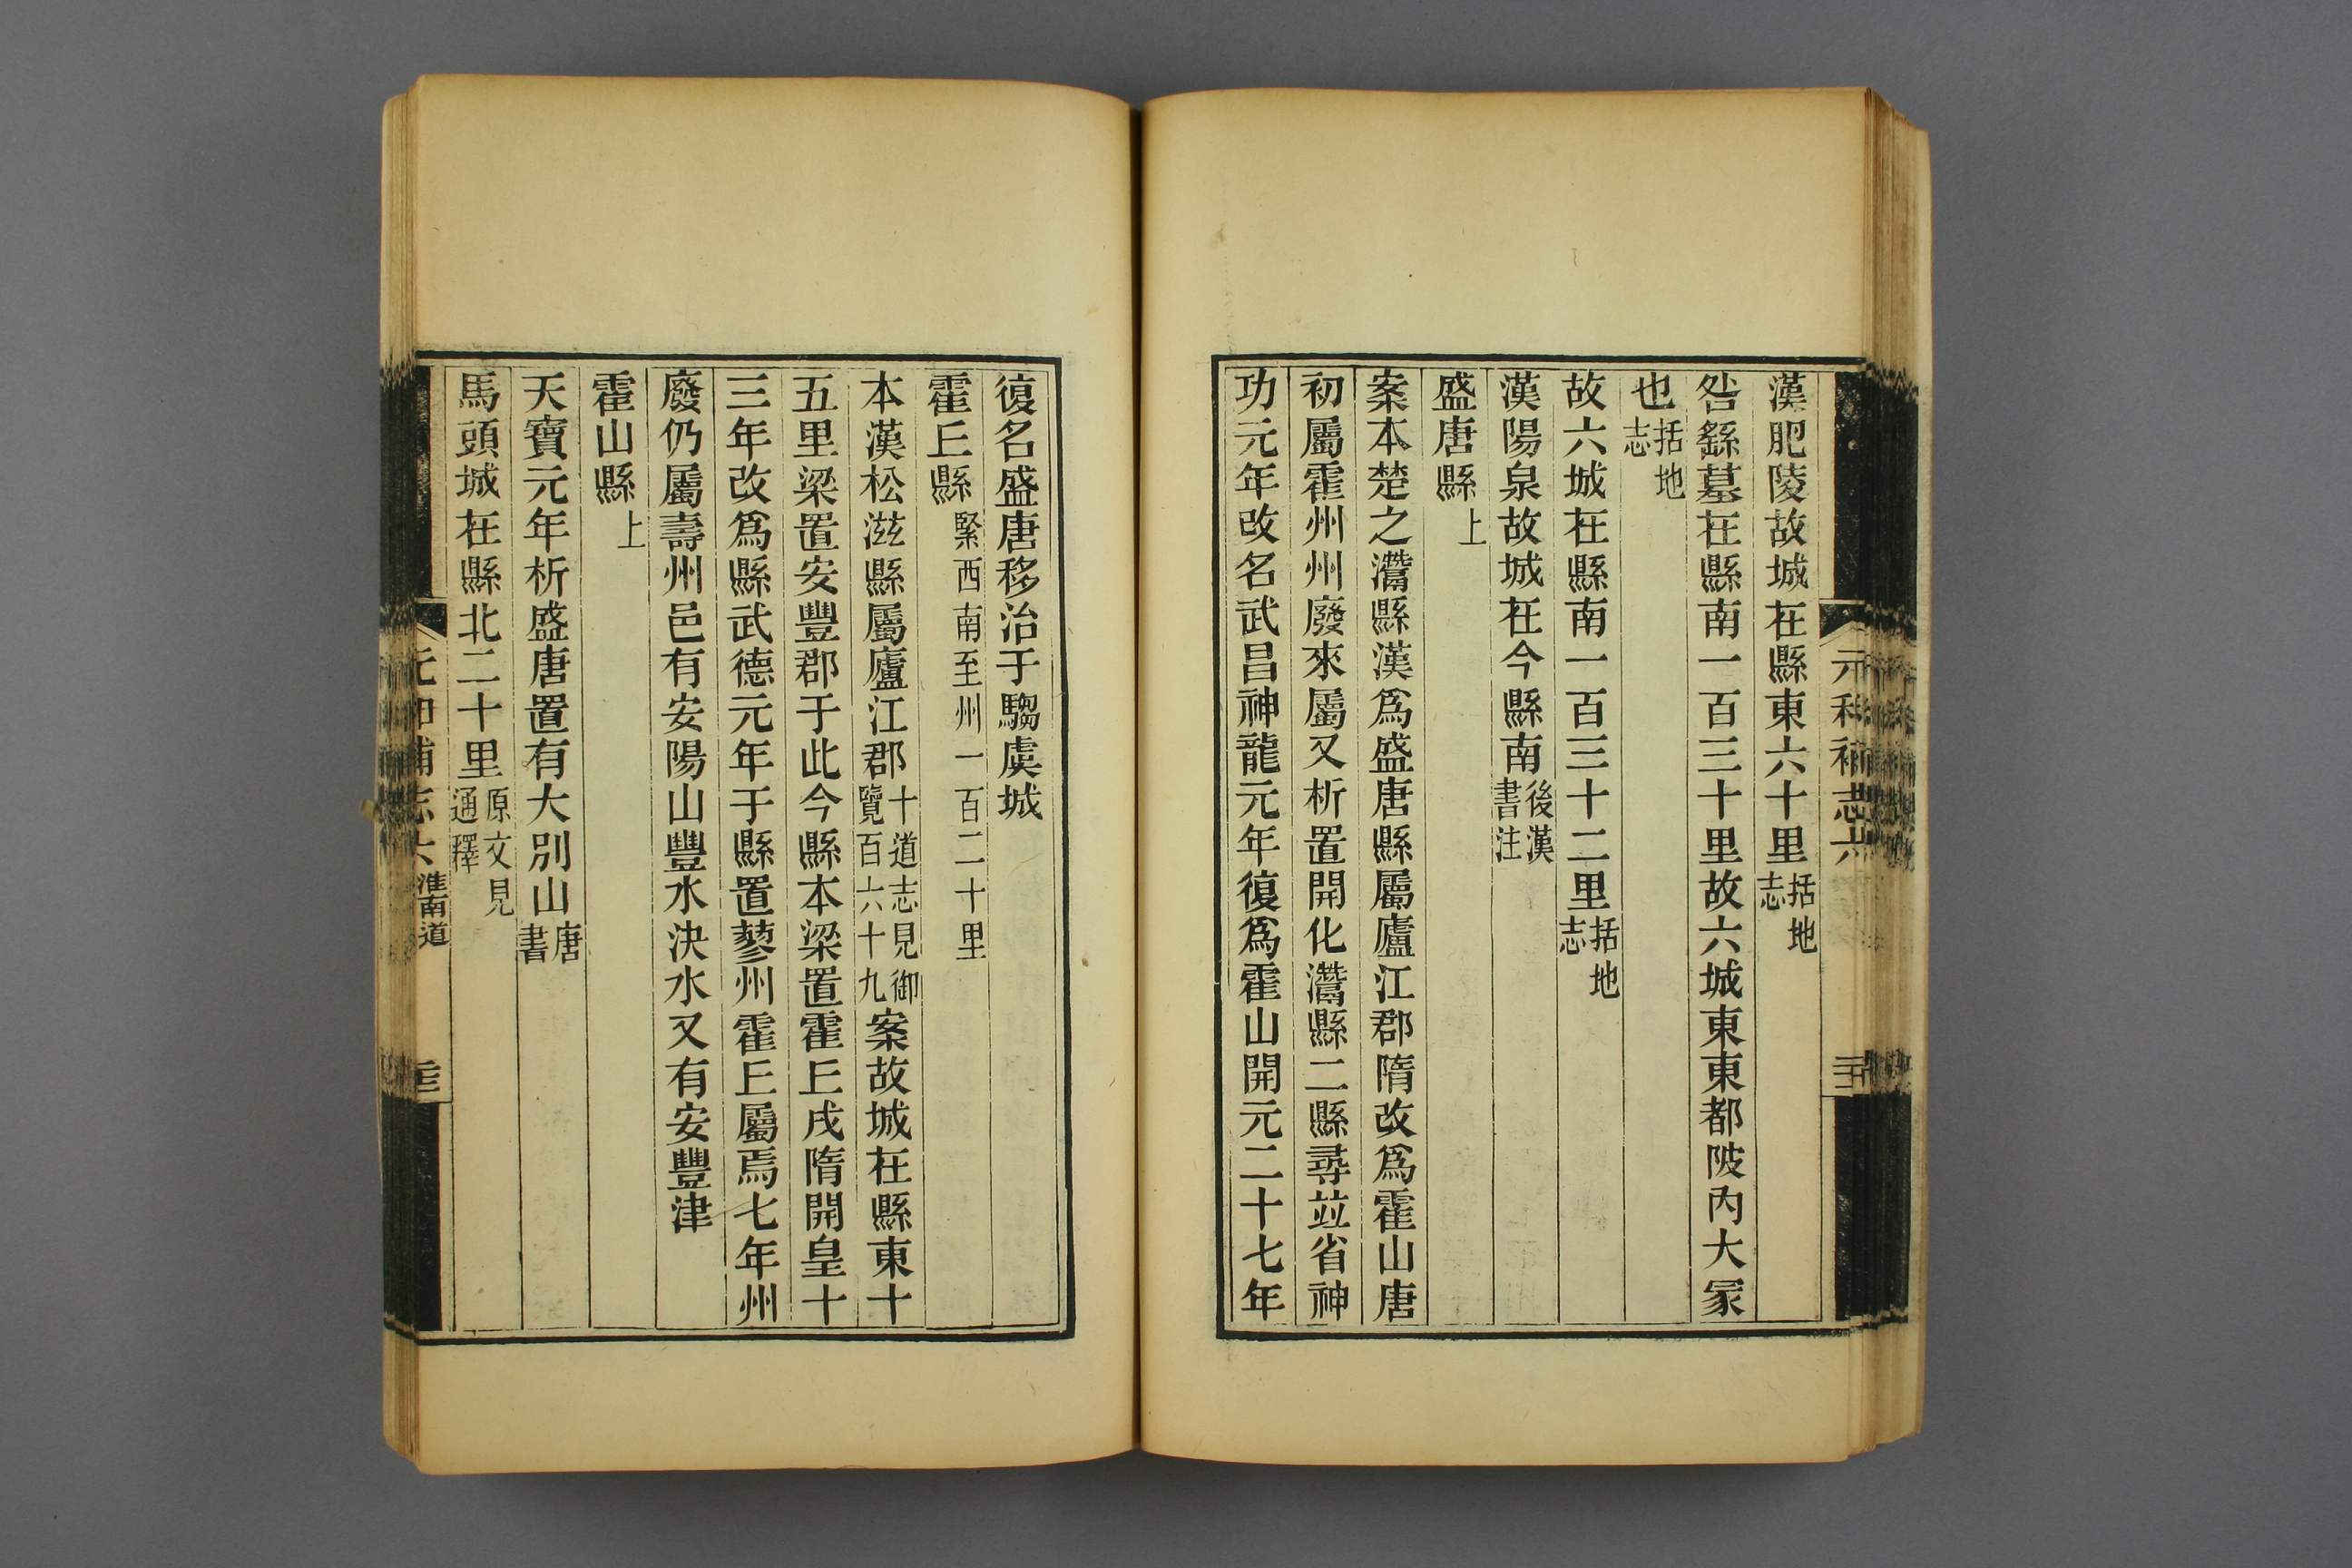 元和補志六
漢肥陵故城在縣東六十里括地志
咎繇墓在縣南一百三十里故六城東東都陂內大冢
也括地志
故六城在縣南一百三十二里括地志
漢陽泉故城在今縣南後漢書注
盛唐縣上
案本楚之灊縣漢爲盛唐縣屬廬江郡隋改爲霍山唐
初屬霍州州廢來屬又析置開化灊縣二縣尋竝省神
功元年改名武昌神龍元年復爲霍山開元二十七年
復名盛唐移治于騶虞城
霍丘縣緊西南至州一百二十里
本漢松滋縣屬廬江郡十道志見御覽百六十九案故城在縣東十
五里梁置安豐郡于此今縣本梁置霍丘戍隋開皇十
三年改爲縣武德元年于縣置蓼州霍丘屬焉七年州
廢仍屬壽州邑有安陽山豐水決水又有安豐津
霍山縣上
天寶元年析盛唐置有大別山唐書
馬頭城在縣北二十里原文見通釋
元和補志六 淮南道